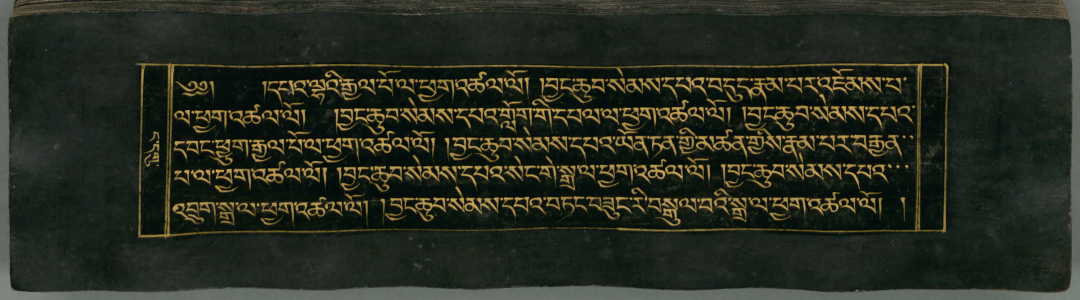 ༄༅། །དཔའ་ལྷའི་རྒྱལ་པོ་ལ་ཕྱག་འཚལ་ལོ། །བྱང་ཆུབ་སེམས་དཔའ་བདུད་རྣམ་པར་འཇོམས་པ་
ལ་ཕྱག་འཚལ་ལོ། །བྱང་ཆུབ་སེམས་དཔའ་གློག་གི་དཔལ་ལ་ཕྱག་འཚལ་ལོ། །བྱང་ཆུབ་སེམས་དཔའ་
དབང་ཕྱུག་རྒྱལ་པོ་ལ་ཕྱག་འཚལ་ལོ། །བྱང་ཆུབ་སེམས་དཔའ་ཡོན་ཏན་གྱི་མཚན་གྱིས་རྣམ་པར་བརྒྱན་
པ་ལ་ཕྱག་འཚལ་ལོ། །བྱང་ཆུབ་སེམས་དཔའ་སེང་གེ་སྒྲ་ལ་ཕྱག་འཚལ་ལོ། །བྱང་ཆུབ་སེམས་དཔའ་
འབྲུག་སྒྲ་ལ་ཕྱག་འཚལ་ལོ། །བྱང་ཆུབ་སེམས་དཔའ་བཏང་བཟུང་རི་བསྒུལ་བའི་སྒྲ་ལ་ཕྱག་འཚལ་ལོ། །